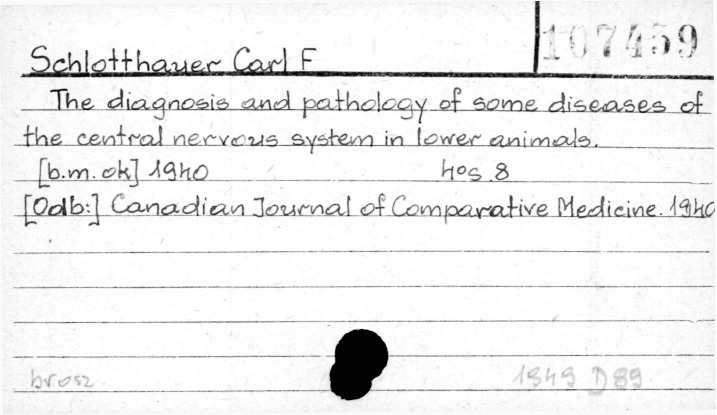 107459
Schlotthauer Carl F
The diagnosis and pathology of some diseases of
the central nervous system in lower animals.
[b.m. ok] 1940 8
[Odb:] Canadian Journal of Comparative Medicine. 1940
brosz. 1949 D 89